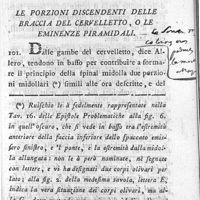 LE PORZIONI DISCENDENTI DELLE
BRACCIA DEL CERVELLETTO, O LE
EMINENZE PIRAMIDALI.
101. Dalle gambe del cervelletto, dice Al-
lero, tendono in basso per contribuire a forma-
re il principio della spinal midolla due porzio-
ni midollari (*) simili alle ora descritte, e del
(*) Ruischio le à fedelmente rappresentate nella
Tav. 16. delle Epistole Problematiche alla fig. 6.
in quell' oscure, che si vede in basso tra l'estremità
anteriore dalla faccia inferiore dello spaccato emis-
fero sinistro, e 'l ponte, e la estremità dalla midol-
la allungata: non le à però nominate, nè segnate
con lettere, e vi ha designati due corpi olivari per
lato; alla fig. 2. della medesima tavola, lettera E,
indica la vera situazione dei corpi olivari, ma